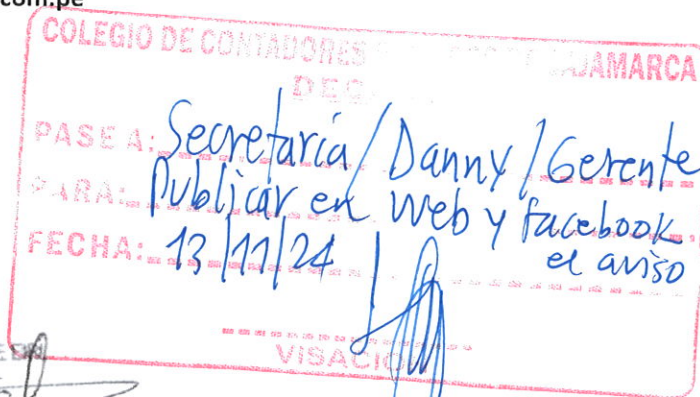 com.pe
COLEGIO DE CONTADORES CAJAMARCA
PASE A: Secretaría / Danny / Gerente
PARA: Publicar en web y facebook
el aviso
FECHA: 13/11/24
VISACION